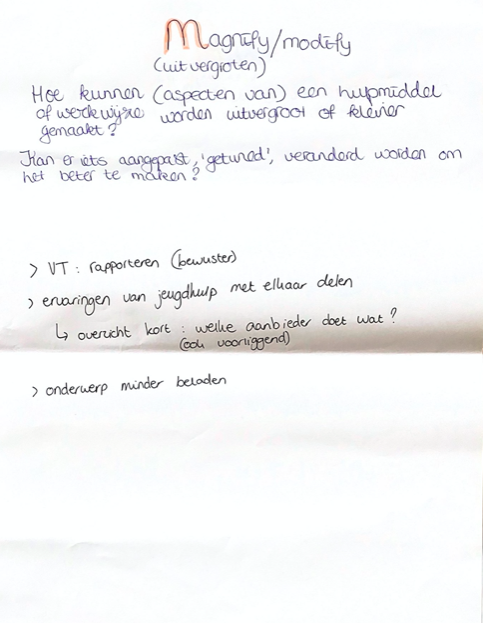 Magnify/modify
(uitvergroten)
Hoe kunnen (aspecten van) een hulpmiddel
of werkwijze worden uitvergroot of kleiner
gemaakt?
Kan er iets aangepast, 'getuned', veranderd worden om
het beter te maken?
> VT: rapporteren (bewuster)
> ervaringen van jeugdhulp met elkaar delen
↳ overzicht kort: welke aanbieder doet wat?
(ook voorliggend)
> onderwerp minder beladen